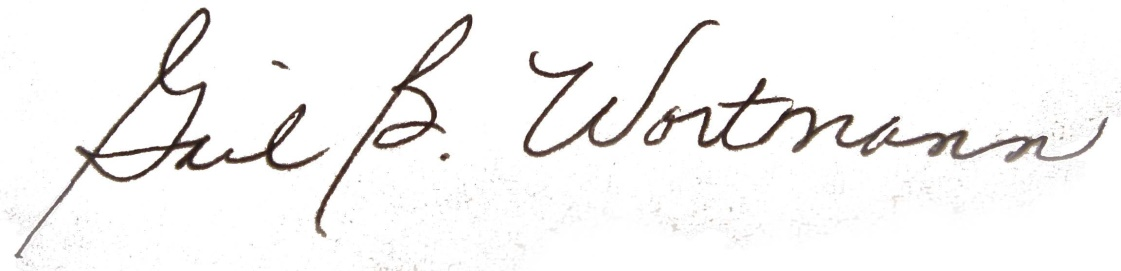 Gail B. Wortmann